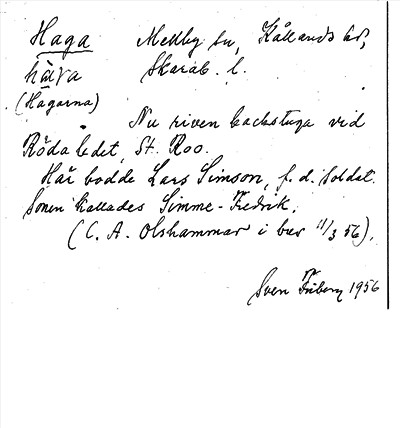 Haga Medby sn, Kållands hd,
håɣa Skarab. l.
(Hagarna)
Nu riven backstuga vid
Röda ledet, St. Roo.
Här bodde Lars Simson, f. d. soldat.
Sonen kallades Simme-Fredrik.
(C. A. Olshammar i brev 11/3 56).
Sven Friberg 1956